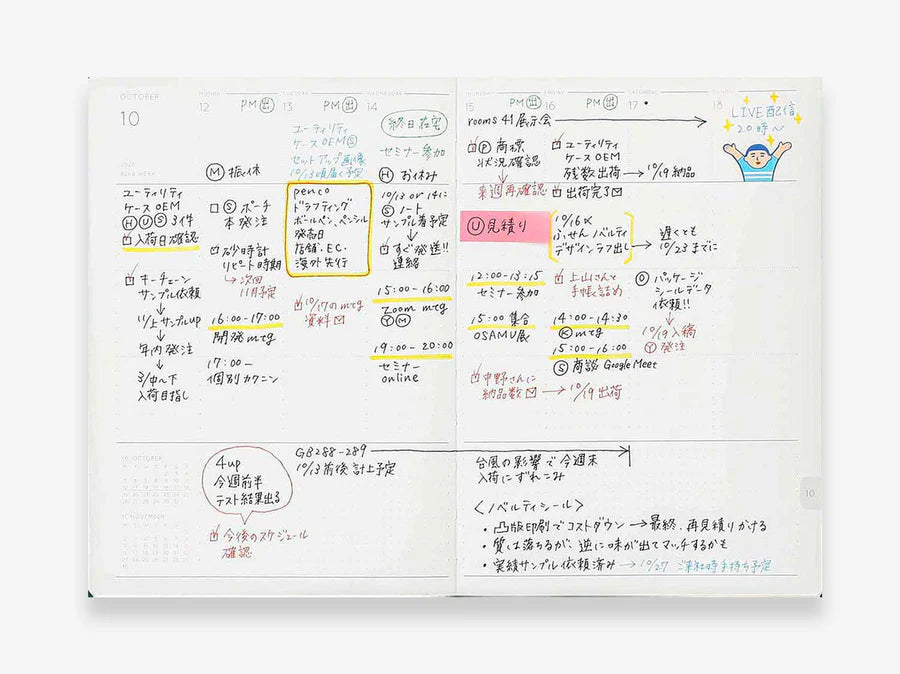 OCTOBER
10
2020
42ND WEEK
ユーティリティ
ケース OEM
Ⓗ Ⓤ Ⓢ 3件
入荷日確認
キーチェーン
サンプル依頼
↓
11/上 サンプルup
↓
年内 発注
↓
3/中〜下
入荷目指し
MONDAY
12
PM 出
Ⓜ 振休
Ⓢ ポーチ
本発注
砂時計
リピート時期
→ 次回
11月予定
16:00-17:00
開発 mtg
17:00-
個別 カクニン
TUESDAY
13
PM 出
ユーティリティ
ケース OEM Ⓢ
セットアップ画像
10/13頃届く予定
penco
ドラフティング
ボールペン、ペンシル
発売日
店舗、EC、
海外先行
10/17の mtg
資料
WEDNESDAY
14
終日 在宅
セミナー 参加
Ⓗ お休み
10/13 or 14に
Ⓢ ノート
サンプル着予定
↓
すぐ発送!!
連絡
15:00-16:00
Zoom mtg
Ⓨ Ⓜ
19:00-20:00
セミナー
online
THURSDAY
15
PM 出
rooms 41 展示会
Ⓟ 商標
状況確認
↓
来週再確認
Ⓤ 見積り
12:00-13:15
セミナー 参加
15:00 集合
OSAMU展
中野さんに
納品数 → 10/19 出荷
FRIDAY
16
PM 出
ユーティリティ
ケース OEM
残数 出荷 → 10/19 納品
出荷完了
10/16〆
ふせん ノベルティ
デザインラフ出し → 遅くても
10/23までに
上山さんと
手帳詰め
14:00-14:30
Ⓚ mtg
15:00-16:00
Ⓢ 商談 Google Meet
SATURDAY
17
Ⓞ パッケージ
シールデータ
依頼!!
↓
10/19 入稿
Ⓨ 発注
SUNDAY
18
LIVE 配信
20時〜
10 OCTOBER
11 NOVEMBER
4up
今週前半
テスト結果出る
今後のスケジュール
確認
GB288-289
10/13 前後 計上予定
台風の影響で今週末
入荷にずれこみ
〈ノベルティシール〉
・凸版印刷でコストダウン → 最終、再見積りかける
・質は落ちるが、逆に味が出てマッチするかも
・実績サンプル依頼済み → 10/27 ご来社時手持ち予定
10